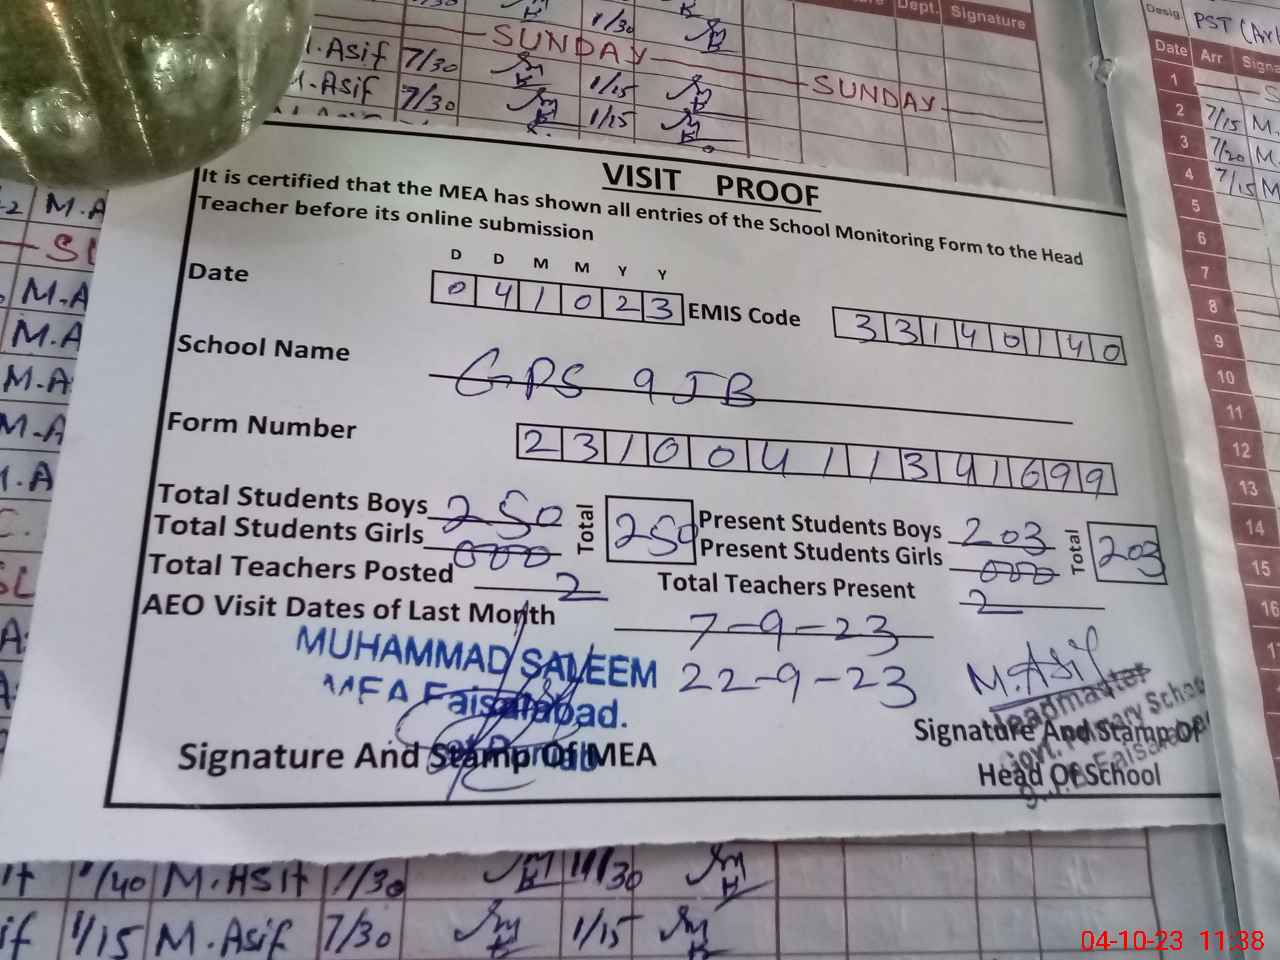 1/30
Dept. Signature
SUNDAY
SUNDAY
M.Asif 7/30 1/15
M.Asif 7/30 1/15
Desig. PST
Date Arr
1
2 7/15 M.
3 7/20 M.
4 7/15 M
5
6
7
8
9
10
11
12
13
14
15
16
M.A
M.A
M.A
M.A
M.A
VISIT PROOF
It is certified that the MEA has shown all entries of the School Monitoring Form to the Head
Teacher before its online submission
D D M M Y Y
Date 0 4 1 0 2 3 EMIS Code 3 3 1 4 0 1 4 0
School Name GPS 9 JB
Form Number 2 3 1 0 0 4 1 1 3 4 1 6 9 9
Total Students Boys 250 Total 250 Present Students Boys 203 Total 203
Total Students Girls 000 Present Students Girls 000
Total Teachers Posted 2 Total Teachers Present 2
AEO Visit Dates of Last Month 7-9-23
22-9-23
MUHAMMAD SALEEM
MEA Faisalabad.
M.Asif
Headmaster
Govt. Primary School
Signature And Stamp Of MEA
Signature And Stamp Of
Head Of School
1/40 M.Asif 1/30 11/30
if 1/15 M.Asif 7/30 1/15
04-10-23 11:38